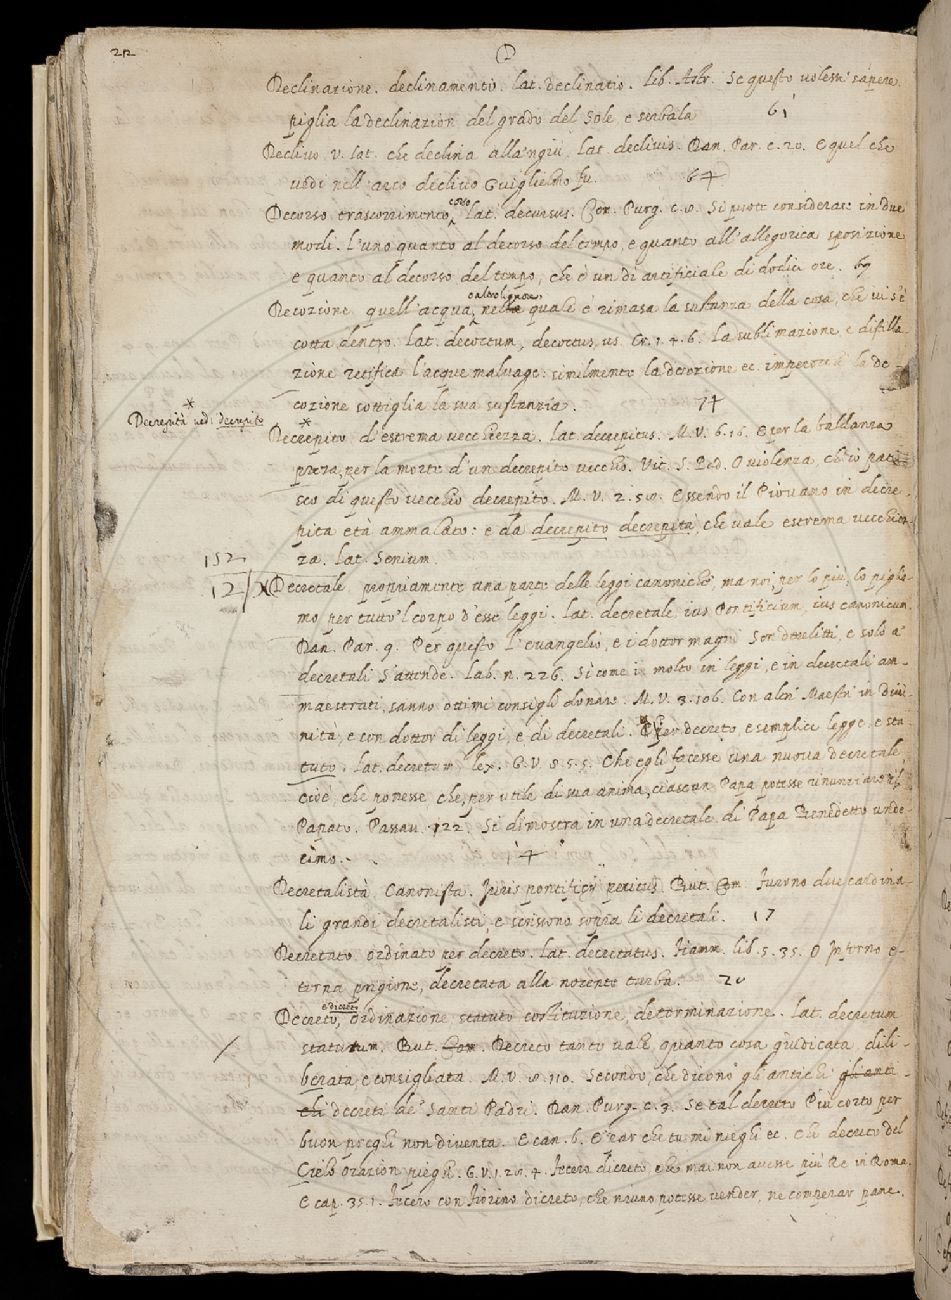 212
D
Declinazione. declinamento. lat. declinatio. lib. Astr. Se questo volessi sapere
61
piglia la declinazion del grado del Sole, e serbala
Declivo. v. lat. che declina all'angiù. lat. declivis. Dan. Par. c. 20. E quel che
vedi nell'arco declivo Guiglielmo fu. 64
corso
Decorso. trascorrimento lat. decursus. Com. Purg. c. 8. Si puote considerare in due
modi. l'uno quanto al decorso del tempo, e quanto all'allegorica sposizione
e quanto al decorso del tempo, che è un dì artificiale di dodici ore. 69
o altro lignore
Decozione quell'acqua, nella quale è rimasa la sustanza della cosa, che vi s'è
cotta dentro. lat. decoctum, decoctus, us. Cr. 1. 4. 6. la sublimazione e distilla-
zione retifica l'acque malvage: similmente la decozione ec. imperocchè la de-
cozione sottiglia la sua sustanzia. 74
Decrepità vedi decrepito
Decrepito d'estrema vecchiezza. lat. decrepitus. M. V. 6. 16. E per la baldanza
presa, per la morte d'un decrepito vecchio. Vit. S. Pad. O violenza, ch'io pati-
sco di questo vecchio decrepito. M. V. 2. 58. Essendo il Piovano in decre-
pita età ammalato: e da decrepito decrepità, che vale estrema vecchiez-
za. lat. Senium.
152
12
Decretale propriamente una parte delle leggi canoniche ma noi per lo più, lo piglia-
mo per tutto 'l corpo d'esse leggi. lat. decretale, ius Pontificium, ius canonicum.
Dan. Par. 9. Per questo l'evangelio, e i dottor magni Son derelitti, e solo a'
decretali S'attende. Lab. n. 226. Sì come in molto in leggi, e in decretali am-
maestrati, sanno ottimi consigli donare. M. V. 3. 106. Con altri Maestri in divi-
nità, e con dottor di leggi, e di decretali. E per decreto, e semplice legge, e sta-
tuto. lat. decretum, lex. G. V. 8. 5. 5. Che egli facesse una nuova decretale
cioè, che ponesse che, per utile di sua anima, ciascun Papa potesse rinunziare il
Papato. Passav. 122. Si dimostra in una decretale di Papa Benedetto unde-
cimo. 14
Decretalista, Canonista. Juris pontificij peritus. But. Com Furono due cardina-
li grandi decretalisti, e scrissono sopra li decretali. 17
Decretato ordinato per decreto. lat. decretatus. Fiamm. lib. 5. 35. O Inferno e-
terna prigione, decretata alla nocente turba. 20
edictor
Decreto, ordinazione statuto costituzione, determinazione. lat. decretum
statutum. But. Com. Decreto tanto vale, quanto cosa giudicata, dili-
berata, e consigliata. M. V. 8. 110. Secondo, che dicono gli antichi gli anti-
chi decreti de' Santi Padri. Dan. Purg. c. 3. Se tal decreto Più corto per
buon preghi non diventa. E can. 6. E' par che tu mi nieghi ec. che decreto del
Cielo orazion pieghi. G. V. 1. 28. 4. Fecero decreto, che mai non avesse più Re in Roma.
E cap. 35. 1. Fecero con Fiorino dicreto, che niuno potesse vender, ne comperar pane.